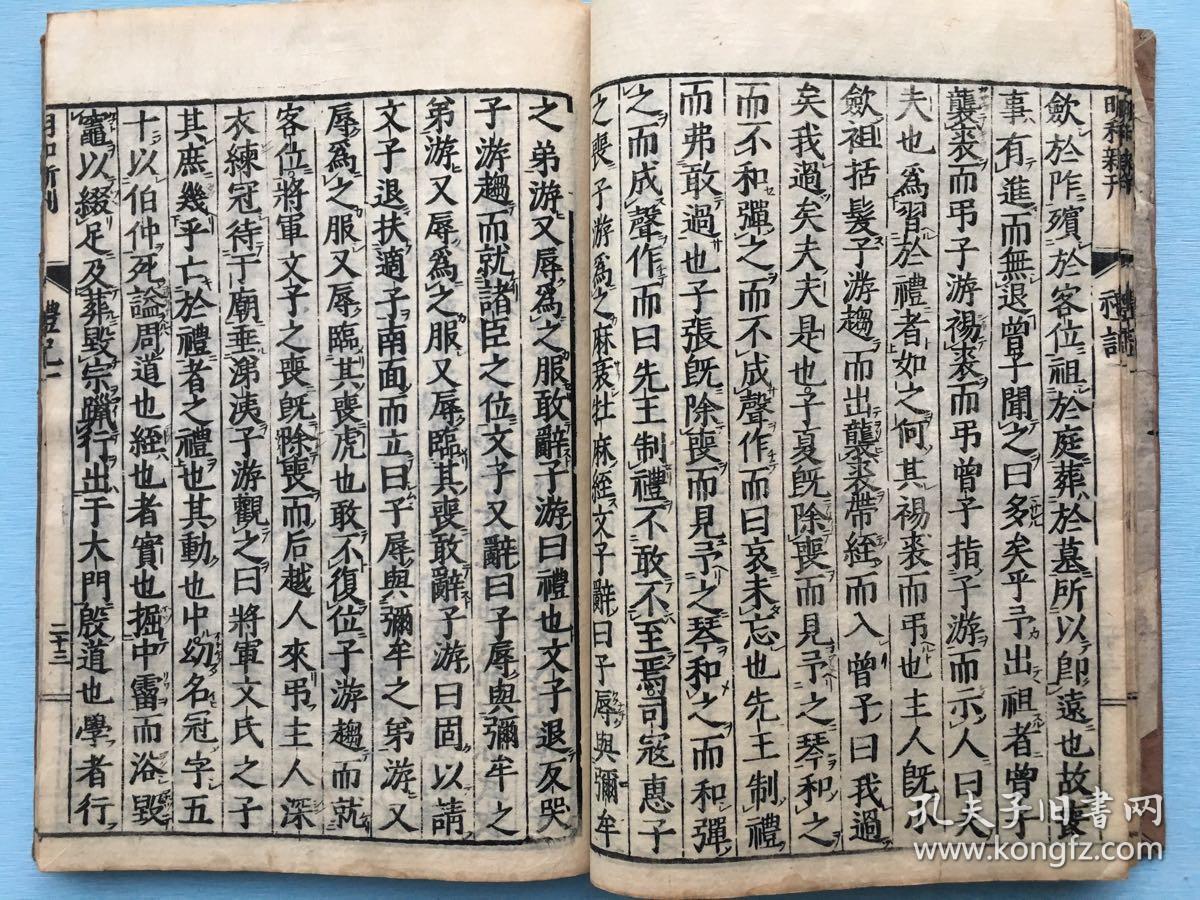 歛於阼殯於客位祖於庭葬於墓所以卽遠也故喪
事有進而無退曾子聞之曰多矣乎予出祖者曾子
襲裘而弔子游裼裘而弔曾子指子游而示人曰夫
夫也爲習於禮者如之何其裼裘而弔也主人旣小
歛袒括髮子游趨而出襲裘帶絰而入曾子曰我過
矣我過矣夫夫是也子夏旣除喪而見予之琴和之
而不和彈之而不成聲作而曰哀未忘也先王制禮
而弗敢過也子張旣除喪而見予之琴和之而和彈
之而成聲作而曰先王制禮不敢不至焉司寇惠子
之喪子游爲之麻衰牡麻絰文子辭曰子辱與彌牟
之弟游又辱爲之服敢辭子游曰禮也文子退反哭
子游趨而就諸臣之位文子又辭曰子辱與彌牟之
弟游又辱爲之服又辱臨其喪敢辭子游曰固以請
文子退扶適子南面而立曰子辱與彌牟之弟游又
辱爲之服又辱臨其喪虎也敢不復位子游趨而就
客位將軍文子之喪旣除喪而后越人來弔主人深
衣練冠待于廟垂涕洟子游觀之曰將軍文氏之子
其庶幾乎亡於禮者之禮也其動也中幼名冠字五
十以伯仲死謚周道也絰也者實也掘中霤而浴毀
竈以綴足及葬毀宗躐行出于大門殷道也學者行
禮記
二十三
孔夫子旧书网
www.kongfz.com